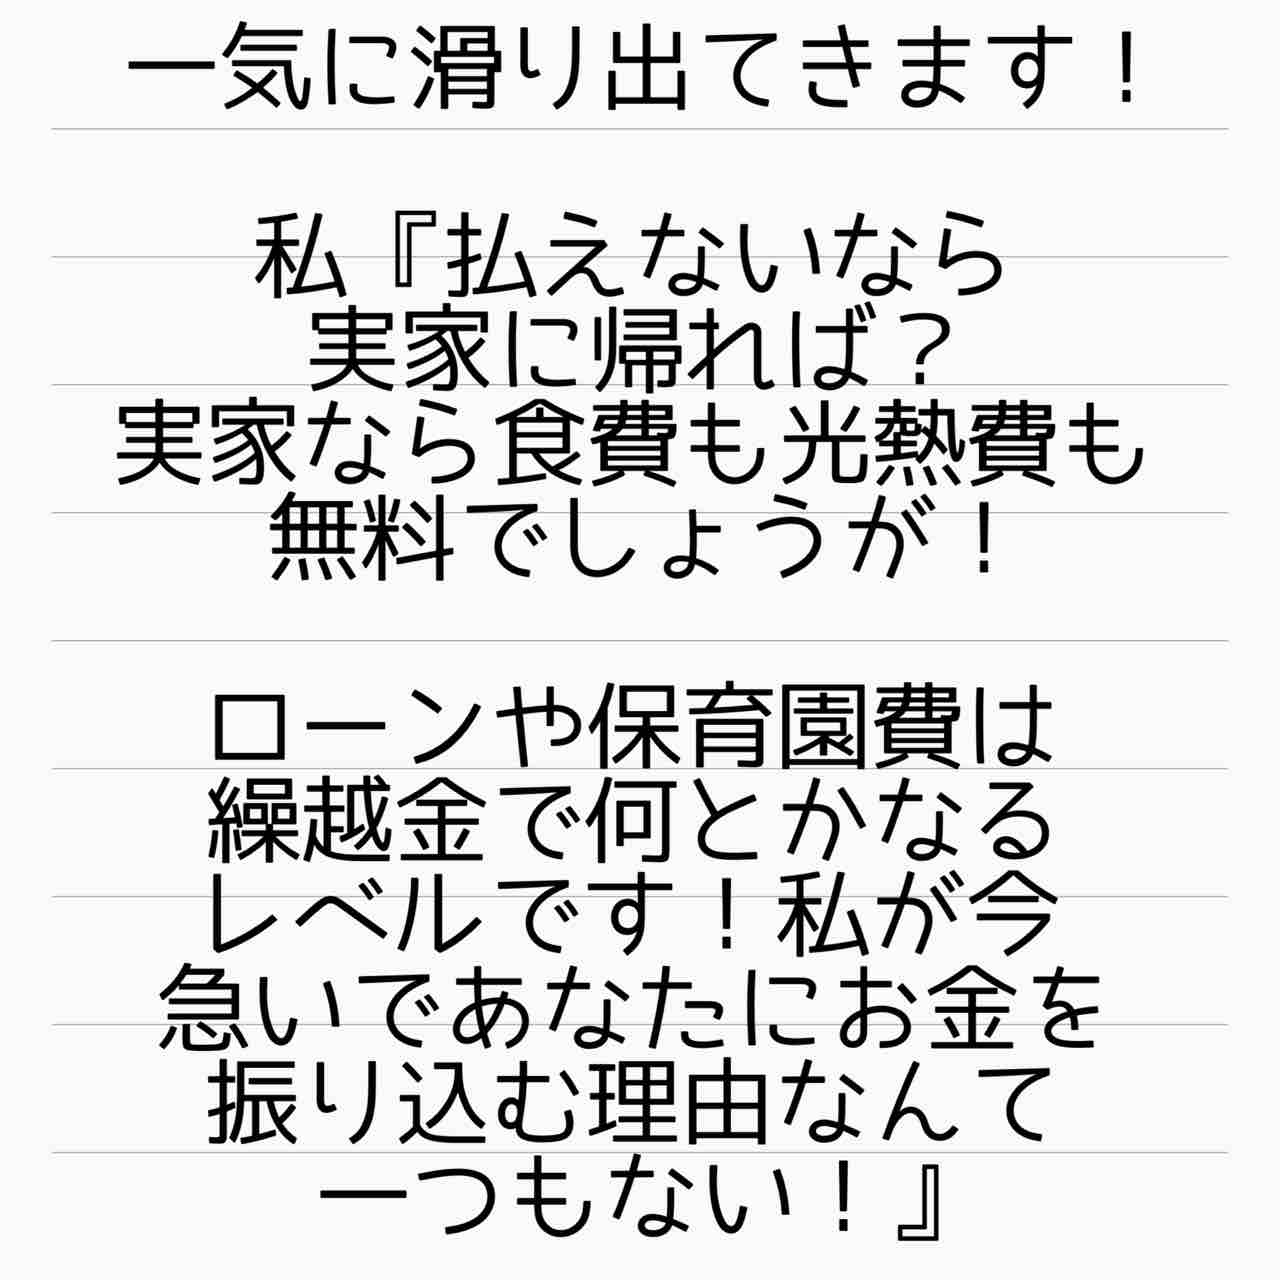 一気に滑り出てきます！
私『払えないなら
実家に帰れば？
実家なら食費も光熱費も
無料でしょうが！
ローンや保育園費は
繰越金で何とかなる
レベルです！私が今
急いであなたにお金を
振り込む理由なんて
一つもない！』